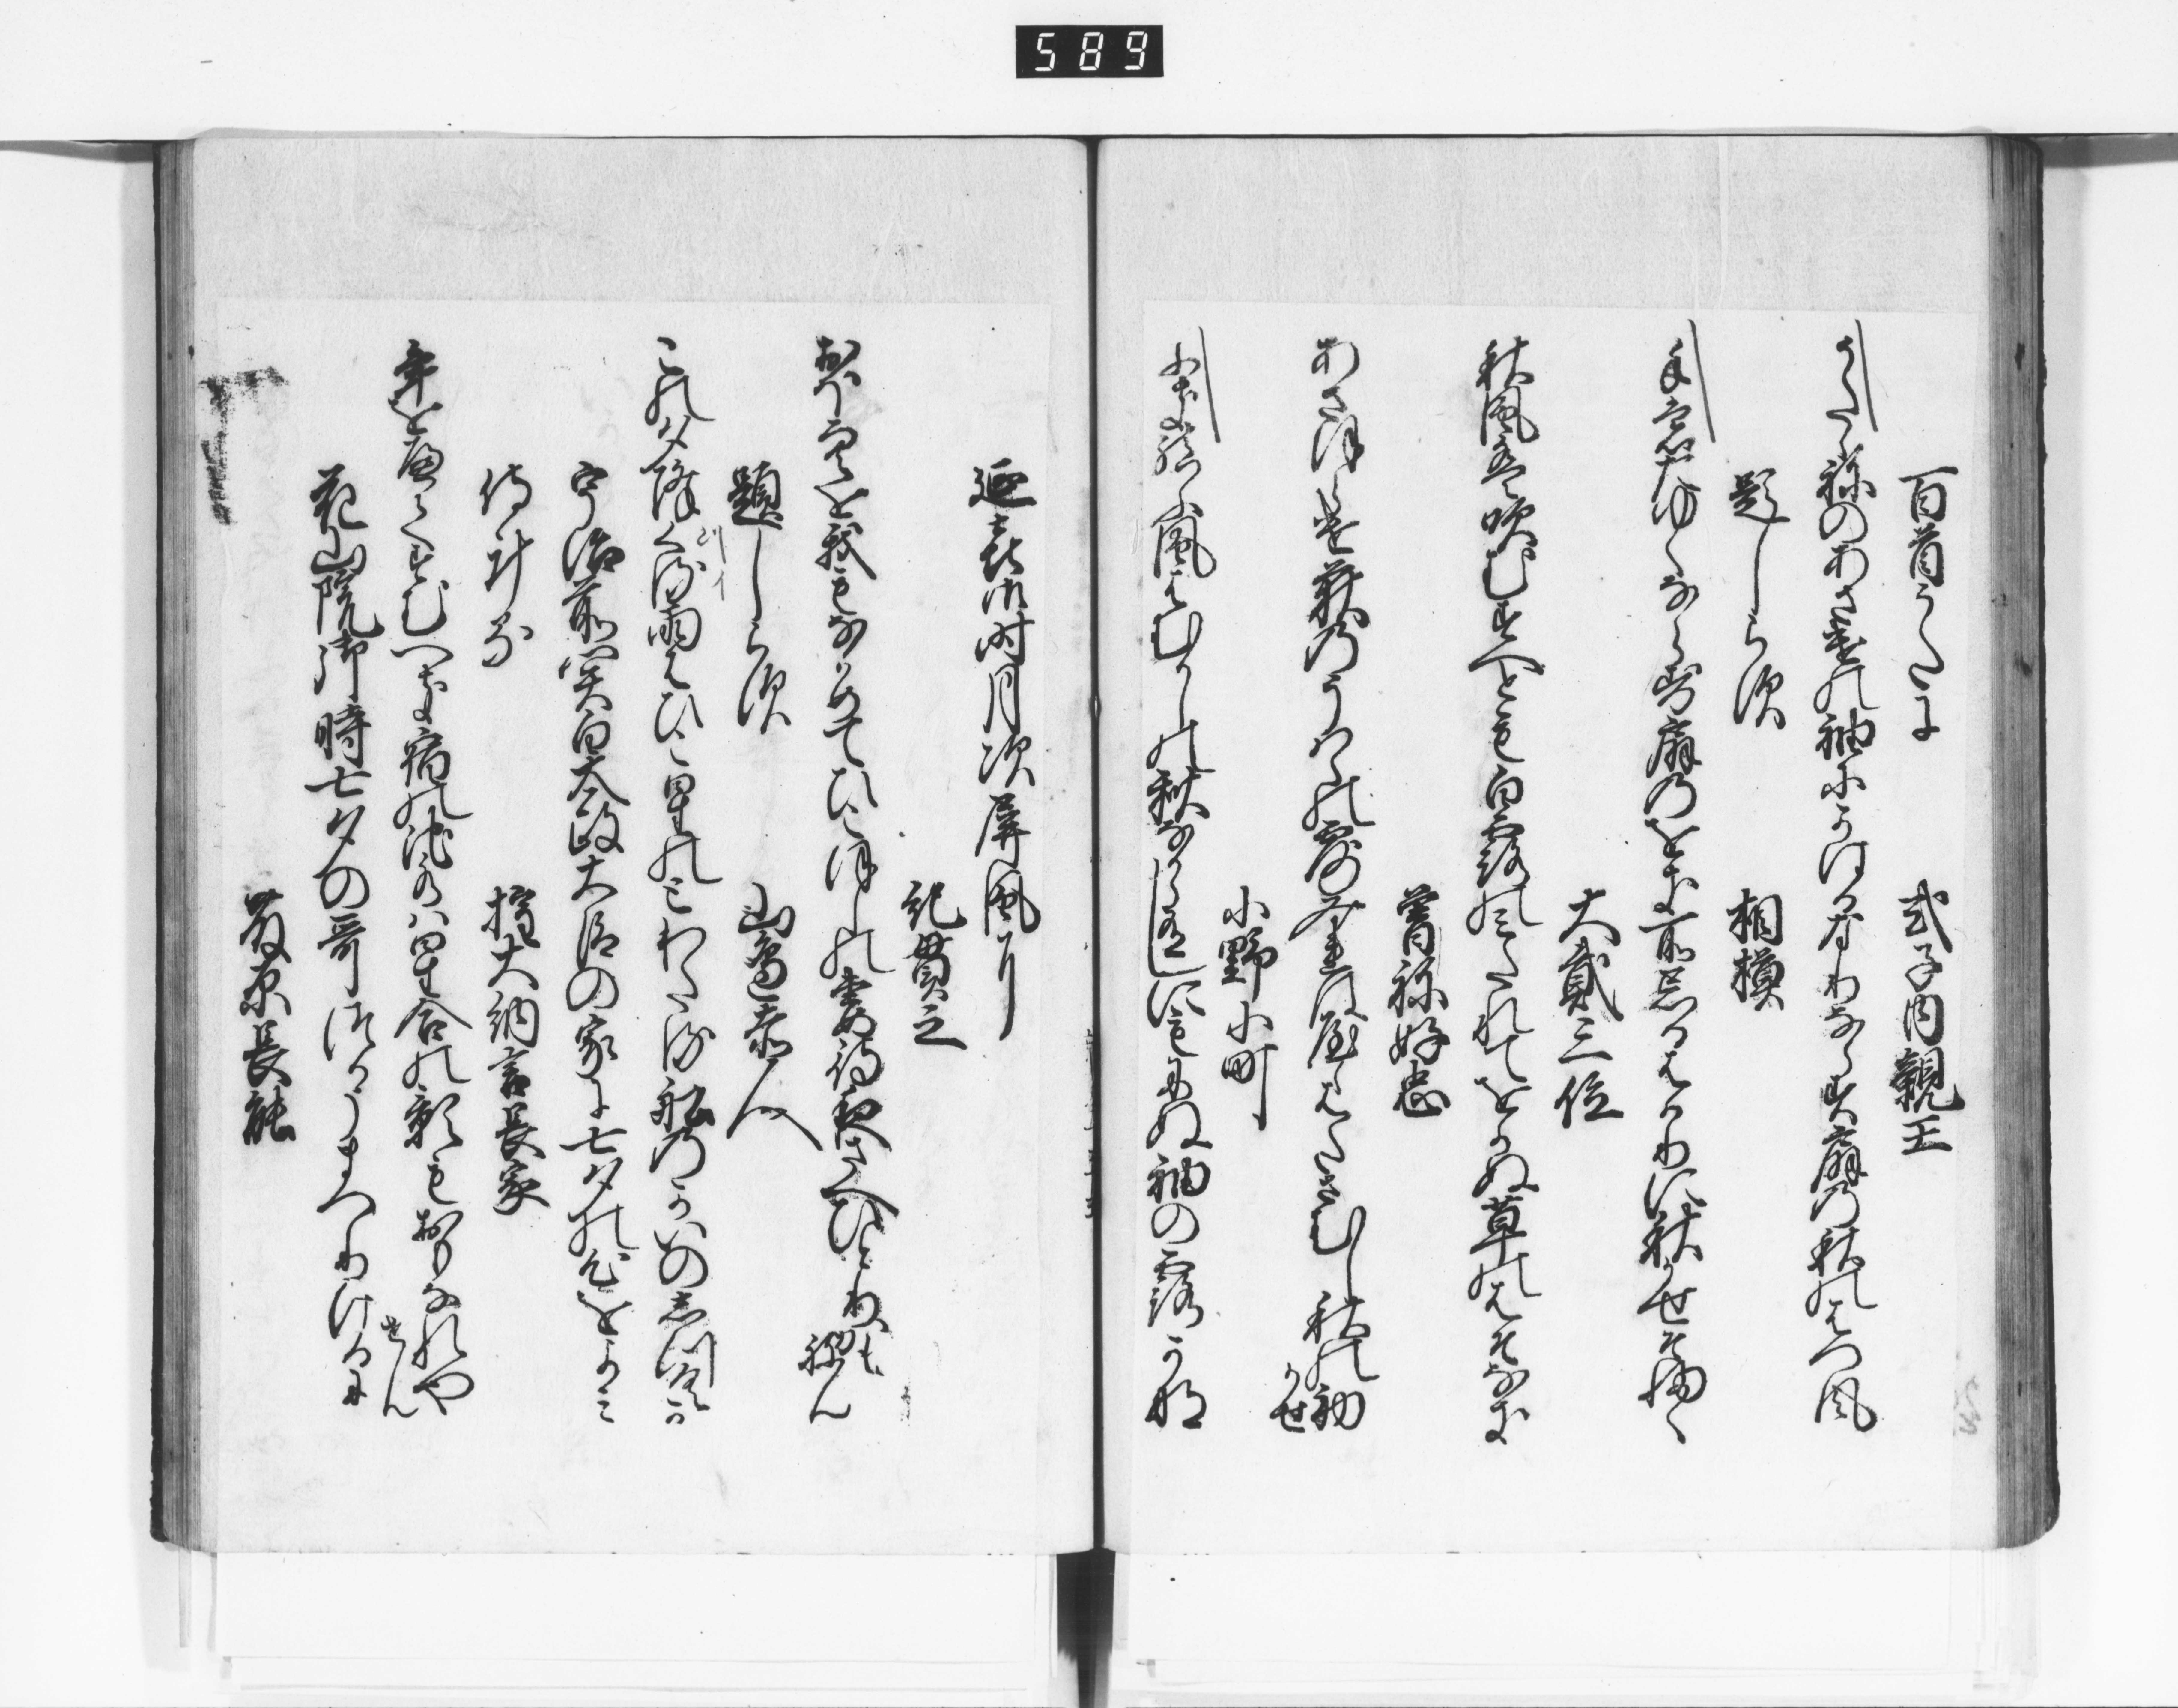 589
百首うたに　式子内親王
うたゝねのあさけの袖にかはる也ならす扇の秋のはつ風
題しらす　相模
手もたゆくならす扇のをき所忘るはかりに秋かせそ吹
大貳三位
秋風は吹むすへとも白露のみたれてをかぬ草のはそなき
曽祢好忠
あさほらけ荻のうは葉の露みれはやゝはたさむし秋の初
かせ
小野小町
吹むすふ風はむかしの秋なからありしにもにぬ袖の露かな
延喜御時月次屏風に
紀貫之
大空を我もなかめてひこほしの妻待夜さへひとりかも
ねん
題しらす　山邊赤人
この夕降くる雨はひこ星のとわたる舩のかいのしつくか
宇治前関白太政大臣の家に七夕の心をよみ
侍けるに　権大納言長家
年をへてすむへき宿の池水は星合の影もおもなれや
せん
花山院御時七夕の哥つかうまつりけるに
藤原長能